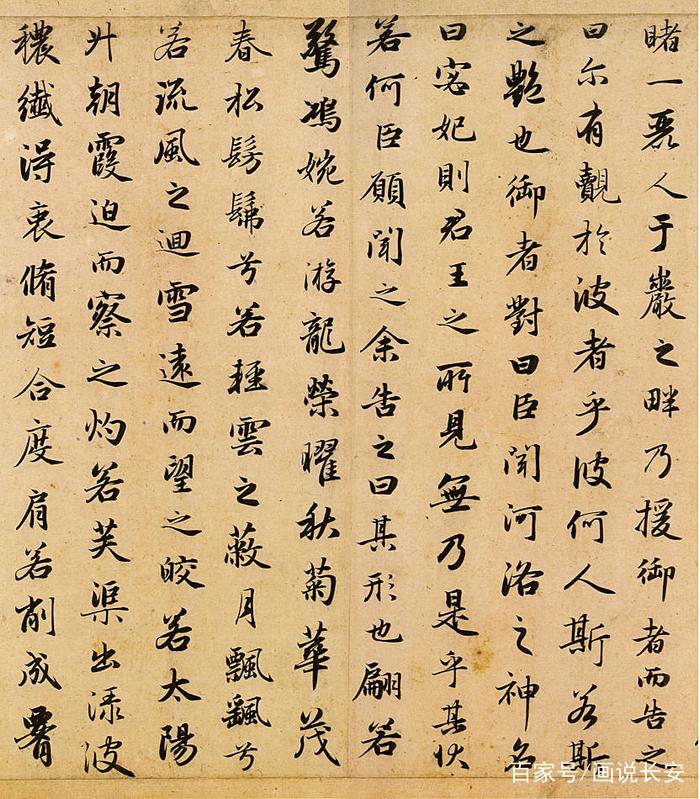 睹一麗人于巖之畔乃援御者而告之
曰尔有覿於彼者乎彼何人斯若斯
之艷也御者對曰臣聞河洛之神名
曰宓妃則君王之所見無乃是乎其状
若何臣願聞之余告之曰其形也翩若
驚鴻婉若游龍榮曜秋菊華茂
春松髣髴兮若輕雲之蔽月飄飖兮
若流風之迴雪遠而望之皎若太陽
升朝霞迫而察之灼若芙渠出渌波
穠纖得衷脩短合度肩若削成署
百家号/画说长安